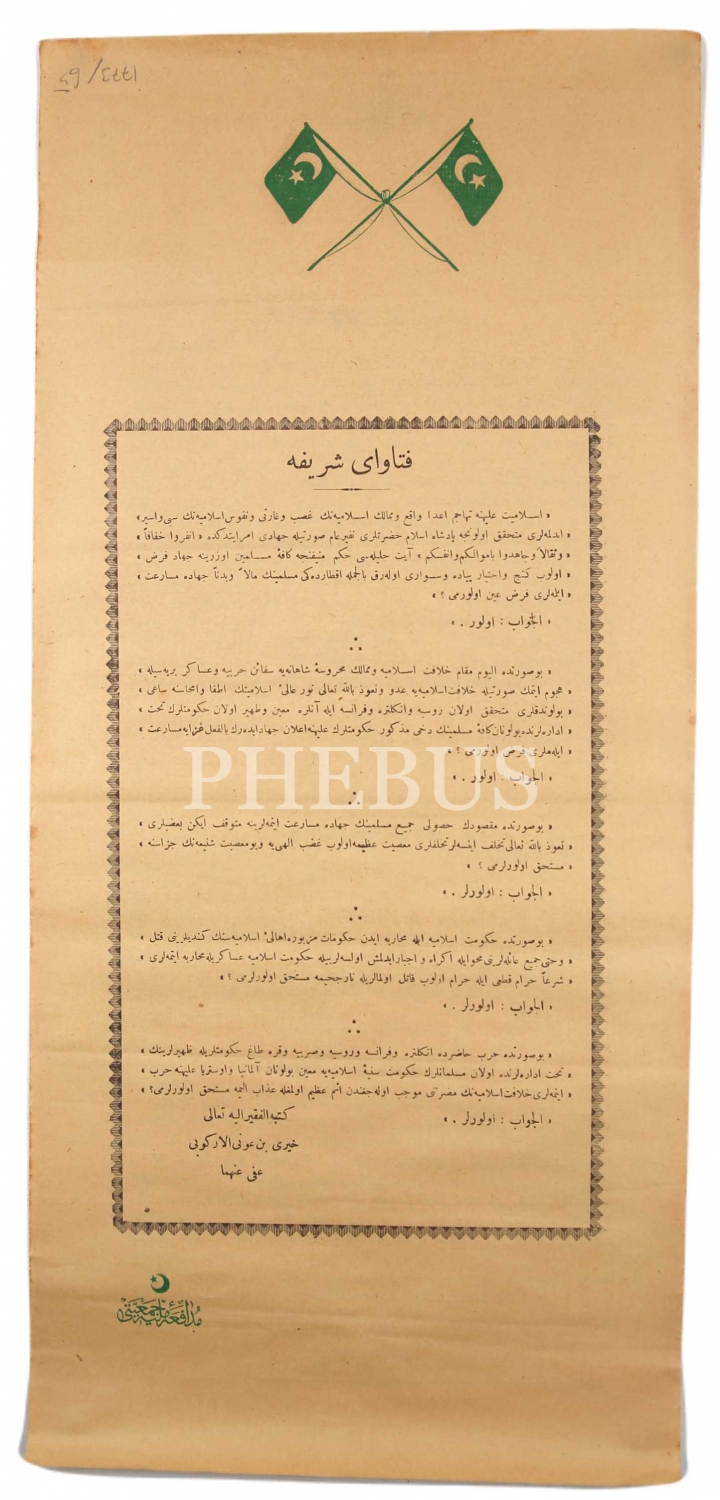 1773/65
فتاوای شریفه
« اسلامیت علیهنه تهاجم اعدا واقع وممالك اسلامیه‌نك غصب وغارتی ونفوس اسلامیه‌نك سبی واسیر»
« ایدلمه‌لری متحقق اولونجه پادشاه اسلام حضرتلری نفیرعام صورتیله جهادی امرایتدكده « انفروا خفافاً »
« وثقالاً وجاهدوا باموالكم وانفسكم » آیت جلیله‌سی حكم منیفنجه كافهٔ مسلمین اوزرینه جهاد فرض »
« اولوب كنج واختیار پیاده وسواری اوله‌رق بالجمله اقطارده‌كی مسلمینك مالاً وبدناً جهاده مسارعت »
« ایله‌لری فرض عین اولورمی ؟ »
« الجواب : اولور . »
« بوصورتده الیوم مقام خلافت اسلامیه وممالك محروسهٔ شاهانه‌یه سفائن حربیه وعساكر بریه‌سیله »
« هجوم ایتمك صورتیله خلافت‌اسلامیه‌یه عدو ونعوذ بالله تعالی نور عالیٔ اسلامیتك اطفا وامحاسنه ساعی »
« بولوندقلری متحقق اولان روسیه وانكلتره وفرانسه ایله آنلره معین وظهیر اولان حكومتلرك تحت »
« اداره‌لرنده بولونان كافهٔ مسلمینك دخی مذكور حكومتلرك علیهنه اعلان جهاد ایده‌رك بالفعل غزایه مسارعت »
« ایله‌ملری فرض اولورمی ؟ »
« الجواب : اولور . »
PHEBUS
« بوصورتده مقصودك حصولی جمیع مسلمینك جهاده مسارعت ایتمه‌لرینه متوقف ایكن بعضیلری »
« نعوذ بالله تعالی تخلف ایتسه‌لر تخلفلری معصیت عظیمه اولوب غضب الهی‌یه وبومعصیت شنیعه‌نك جزاسنه »
« مستحق اولورلرمی ؟ »
« الجواب : اولورلر . »
« بوصورتده حكومت اسلامیه ایله محاربه ایدن حكومات مزبوره اهالیٔ اسلامیه‌سنك كندیلرینی قتل »
« وحتی جمیع عائله‌لرینی محو ایله اكراه و اجبار ایدلمش اولسه‌لر بیله حكومت اسلامیه عساكریله محاربه ایتمه‌لری »
« شرعاً حرام قطعی ایله حرام اولوب قاتل اولمالریله نارجحیمه مستحق اولورلرمی ؟ »
« الجواب : اولورلر . »
« بوصورتده حرب حاضرده انكلتره وفرانسه وروسیه وصربیه وقره طاغ حكومتلریله ظهیرلرینك »
« تحت اداره‌لرنده اولان مسلمانلرك حكومت سنیهٔ اسلامیه‌یه معین بولونان آلمانیا واوستریا علیهنه حرب »
« ایتمه‌لری خلافت اسلامیه‌نك مضرتنی موجب اوله‌جغندن اثم عظیم اولمغله عذاب الیمه مستحق اولورلرمی؟ »
« الجواب : اولورلر . »
كتبه الفقیر الیه تعالی
خیری بن عونی الاركوبی
عفی عنهما
مدافعهٔ ملیه جمعیتی